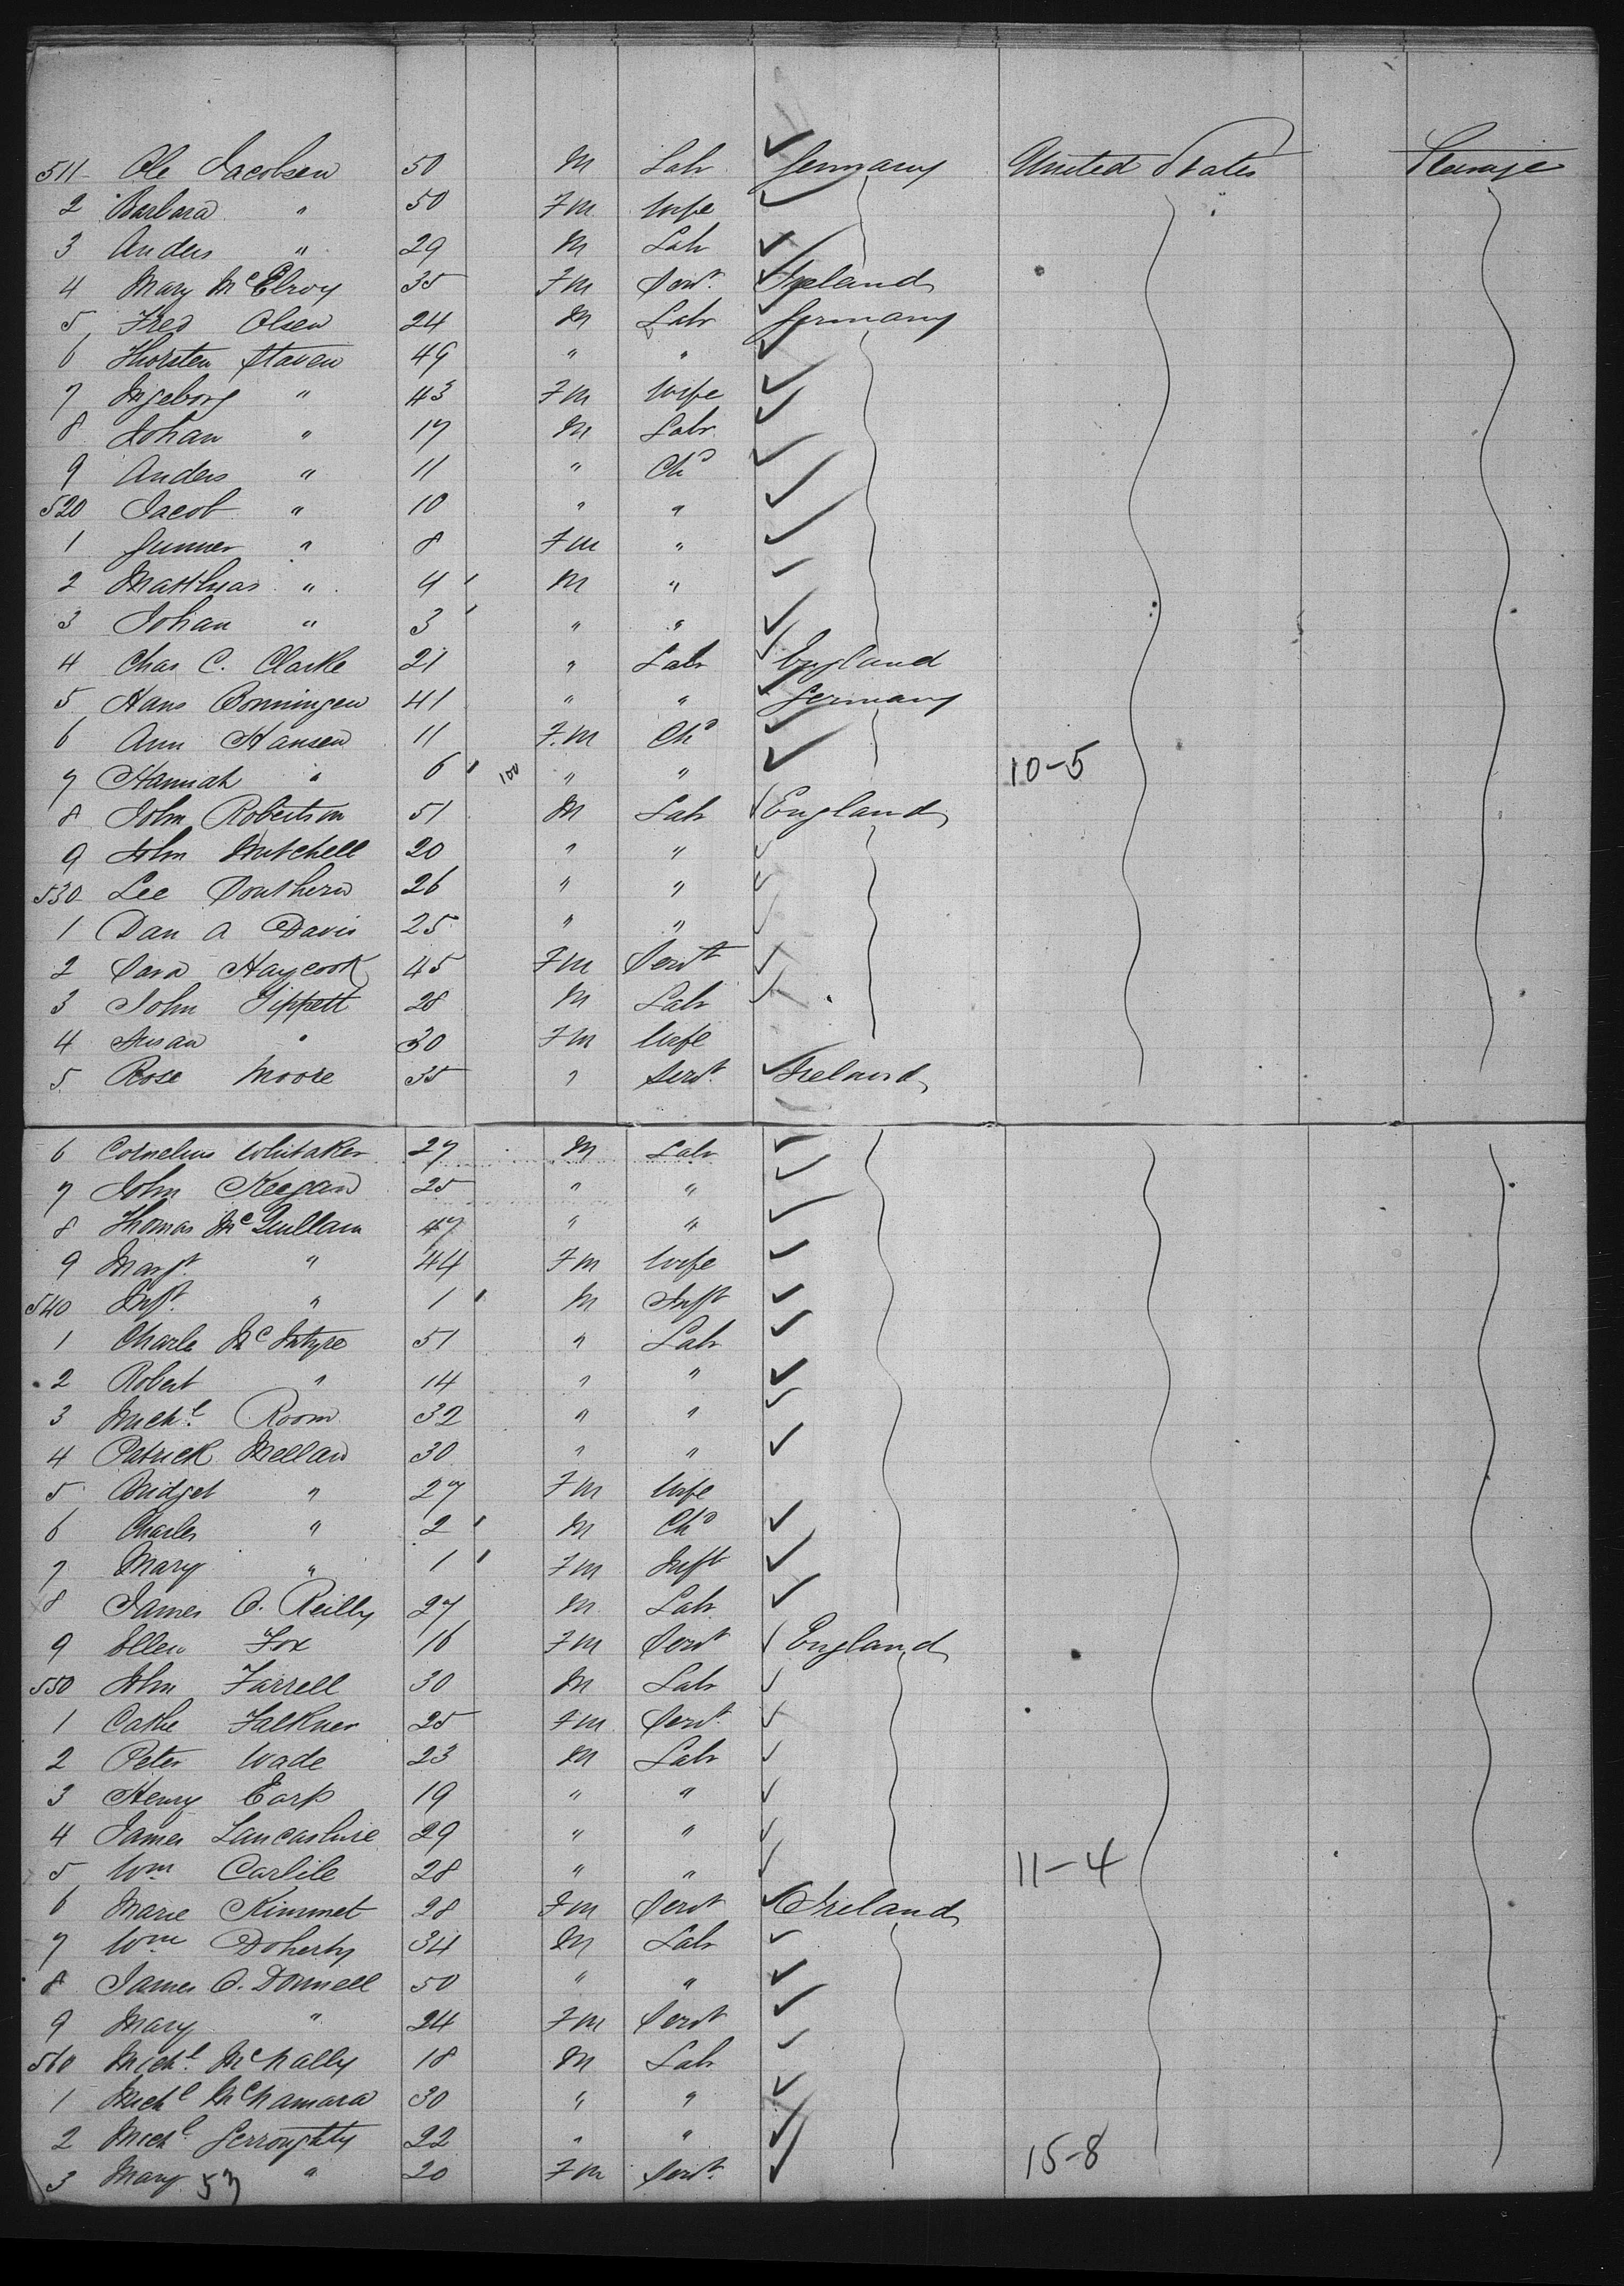 511 Ole Jacobsen 50 M Labr Germany United States Steerage
2 Barbara " 50 Fm Wife
3 Anders " 29 M Labr
4 Mary McElroy 35 Fm Servt Ireland
5 Fred Olsen 24 M Labr Germany
6 Thorsten Staven 49 " "
7 Ingeborg " 43 Fm Wife
8 Johan " 17 M Labr
9 Anders " 11 " Chd
520 Jacob " 10 " "
1 Gunner " 8 Fm "
2 Matthias " 4 M "
3 Johan " 3 " "
4 Chas C. Clarke 21 " Labr England
5 Hans Bonningen 41 " " Germany
6 Ann Hansen 11 F.m Chd
7 Hannah " 6 100 " " 10-5
8 John Robertson 51 M Labr England
9 John Mitchell 20 " "
530 Lee Southern 26 " "
1 Dan A Davis 25 " "
2 Sara Haycook 45 Fm Servt
3 John Tippett 28 M Labr
4 Susan " 30 Fm Wife
5 Rose Moore 35 " Servt Ireland
6 Cornelius Whitaker 27 M Labr
7 John Keegan 25 " "
8 Thomas McQuillam 47 " "
9 Margt " 44 Fm Wife
540 Inft " 1 M Inft
1 Charls McIntyre 51 " Labr
2 Robert " 14 " "
3 Michl Room 32 " "
4 Patrick Mellan 30 " "
5 Bridget " 27 Fm Wife
6 Charles " 2 M Chd
7 Mary " 1 Fm Inft
8 James O. Reilly 27 M Labr
9 Ellen Fox 16 Fm Servt England
550 John Farrell 30 M Labr
1 Cathe Falkner 25 Fm Servt
2 Peter Wade 23 M Labr
3 Henry Earp 19 " "
4 James Lancashire 29 " "
5 Wm Carlile 28 " " 11-4
6 Marie Kimmet 28 Fm Servt Ireland
7 Wm Doherty 34 M Labr
8 James O. Donnell 50 " "
9 Mary " 24 Fm Servt
560 Michl McNally 18 M Labr
1 Michl McNamara 30 " "
2 Michl Gerroughty 22 " "
3 Mary " 20 Fm Servt 15-8
53